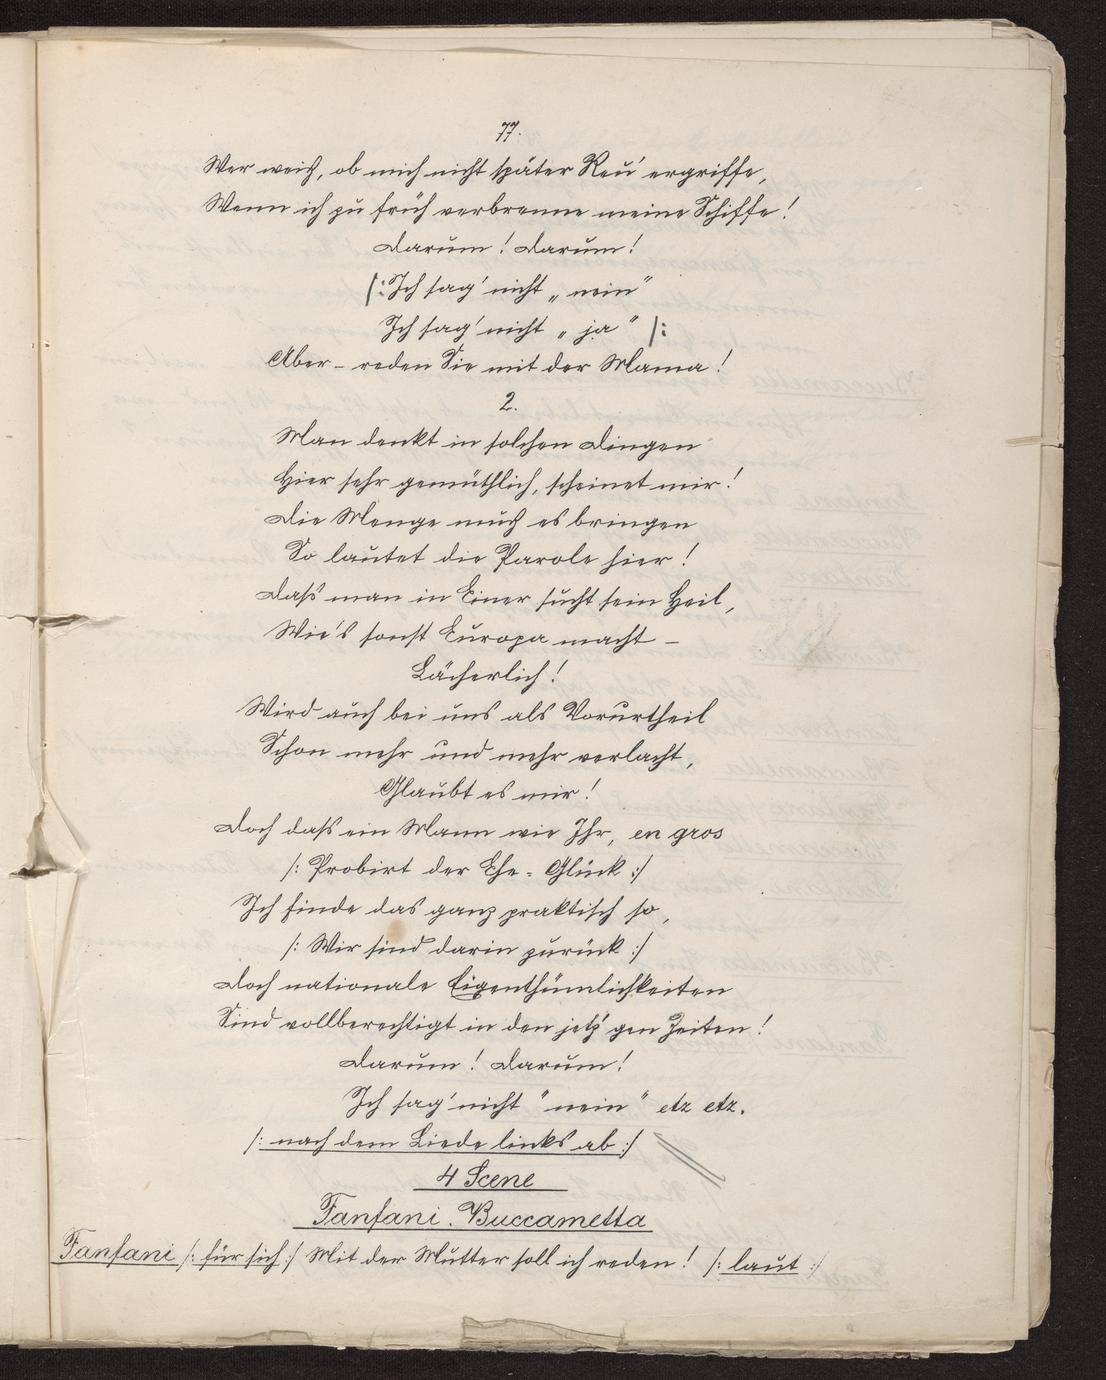 77.
Wer weiß, ob mich nicht später Reu' ergriffe,
Wenn ich zu früh verbrenne meine Schiffe!
Darum! Darum!
/: Ich sag' nicht „nein"
Ich sag' nicht „ja" /:
Aber – reden Sie mit der Mama!
2.
Man denkt in solchen Dingen
Hier sehr gemüthlich, scheinet mir!
Die Menge muß es bringen
So lautet die Parole hier!
Daß man in Einer sucht sein Heil,
Wie's sonst Europa macht –
Lächerlich!
Wird auch bei uns als Vorurtheil
Schon mehr und mehr verlacht,
Glaubt es mir!
Doch daß ein Mann wie Ihr, en gros
/: Probirt der Ehe-Glück :/
Ich finde das ganz praktisch so,
/: Wir sind darin zurück :/
Doch nationale Eigenthümlichkeiten
Sind vollberechtigt in den jetz'gen Zeiten!
Darum! Darum!
Ich sag' nicht "nein" etz etz.
/: nach dem Liede links ab :/
4 Scene
Fanfani. Buccametta
Fanfani /: für sich :/ Mit der Mutter soll ich reden! /: laut :/